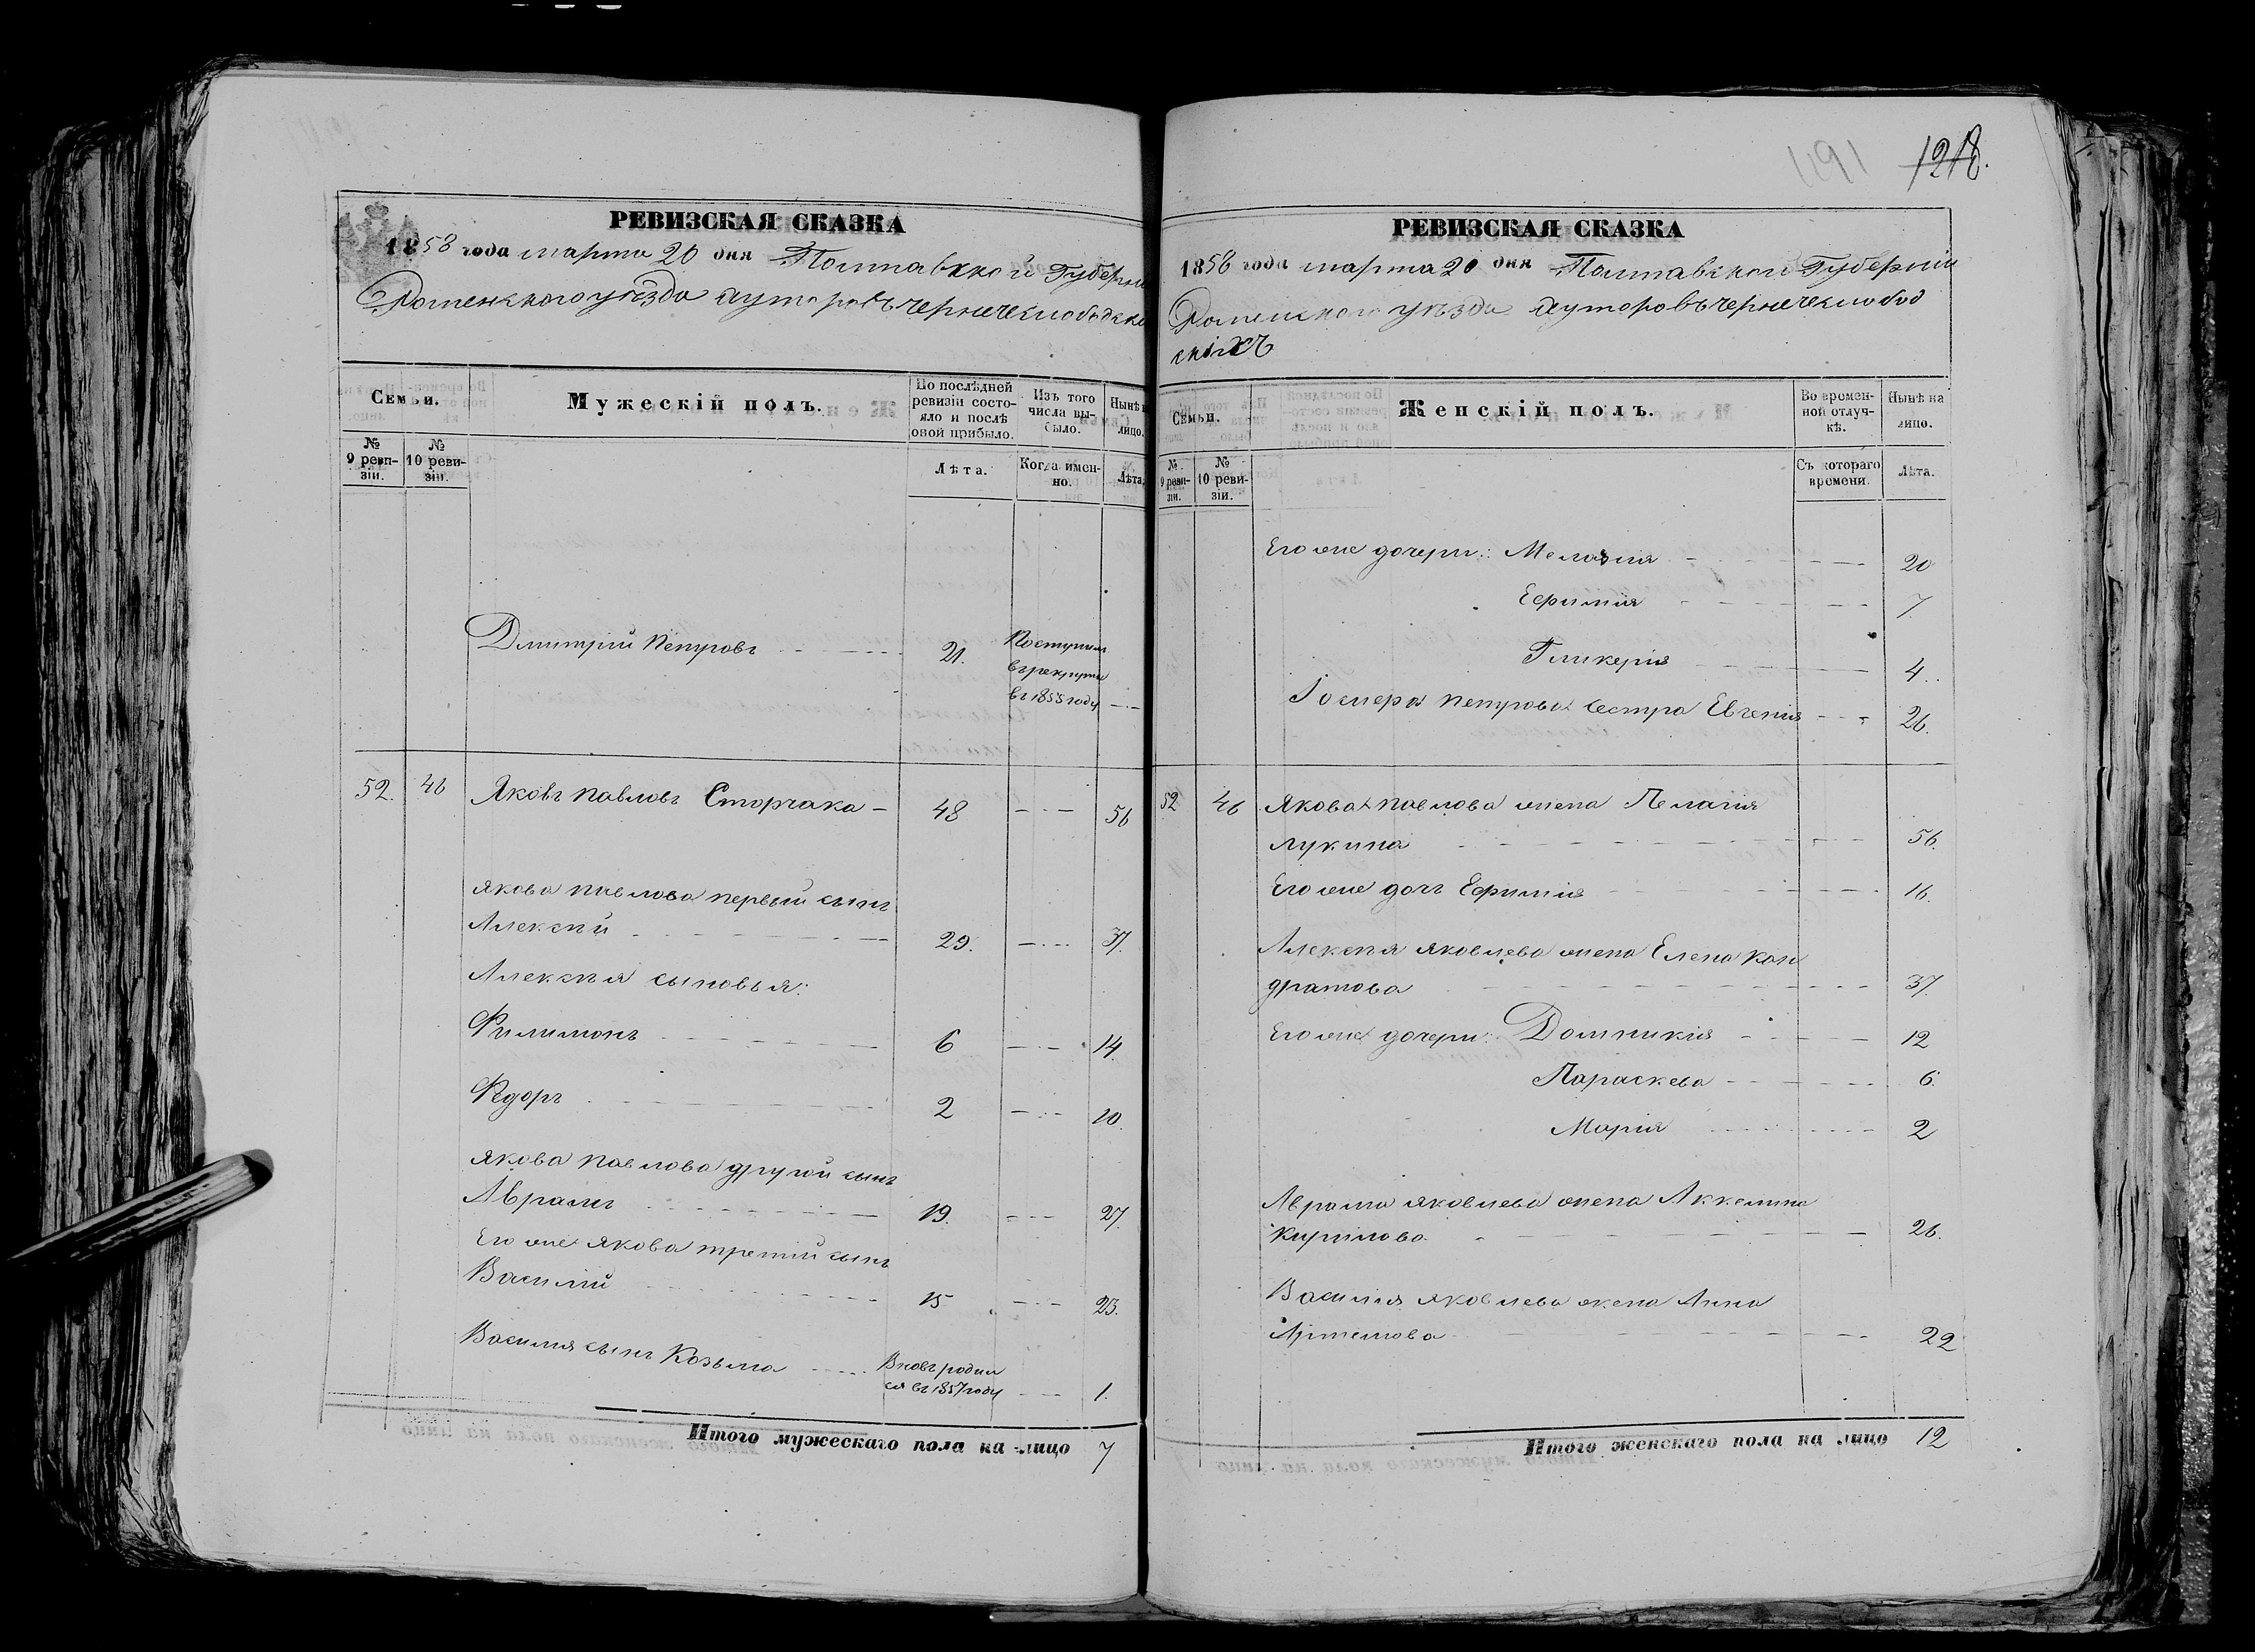 РЕВИЗСКАЯ СКАЗКА
1858 года марта 20 дня Полтавской Губерни
Роменского уѣзда хуторовъ чернечеслободско
Семьи.
Мужескій полъ.
По послѣдней ревизіи состояло и послѣ оной прибыло.
Изъ того числа выбыло.
Нынѣ на лицо.
№ 9 ревизіи.
№ 10 ревизіи.
Лѣта.
Когда именно.
Лѣта.
Дмитрій Петровъ 21. Поступилъ
в рекруты
въ 1855 году
52. 46 Яковъ Павловъ Сторчака 48 56
Якова Павлова первый сынъ
Алексѣй 29. 37.
Алексѣя сыновья:
Филимонъ 6 14.
Федоръ 2 10.
Якова Павлова другой сынъ
Аврамъ 19. 27.
Его же Якова третий сынъ
Василій 15 23.
Василия сынъ Козьма Вновь родил
ся въ 1857 году 1.
Итого мужескаго пола на лицо 7
1191 1218.
РЕВИЗСКАЯ СКАЗКА
1858 года марта 20 дня Полтавской Губерніи
Роменского уѣзда хуторовъ чернечеслобод
скихъ
Семьи.
Женскій полъ.
Во временной отлучкѣ.
Нынѣ на лицо.
№ 9 ревизіи.
№ 10 ревизіи.
Съ котораго времени.
Лѣта.
Его же дочери: Мелания 20
Ефимия 7.
Гликерия 4.
Петрова сестра Евгения 26.
52 46 Якова Павлова жена Пелагия
Лукина 56.
Его же дочь Ефимия 16.
Алексѣя Яковлева жена Елена Кон
дратова 37.
Его же дочери: Домникия 12
Параскева 6.
Мария 2
Аврама Яковлева жена Аккелина
Кирилова 26.
Василия Яковлева жена Анна
Артемова 22
Итого женскаго пола на лицо 12